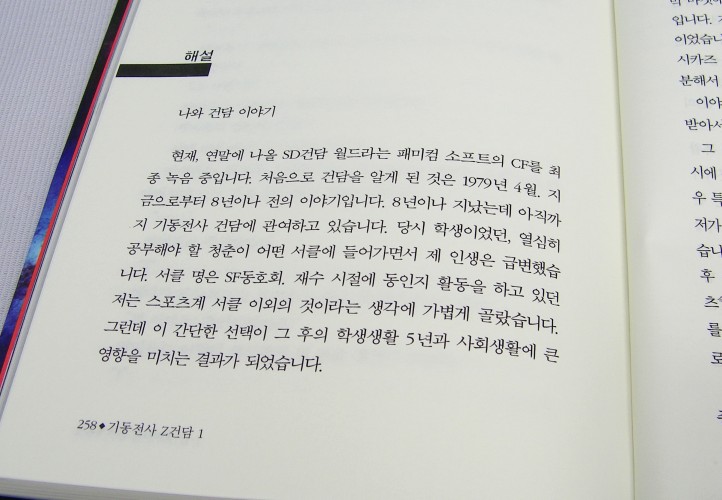 해설
나와 건담 이야기
현재, 연말에 나올 SD건담 월드라는 패미컴 소프트의 CF를 최
종 녹음 중입니다. 처음으로 건담을 알게 된 것은 1979년 4월. 지
금으로부터 8년이나 전의 이야기입니다. 8년이나 지났는데 아직까
지 기동전사 건담에 관여하고 있습니다. 당시 학생이었던, 열심히
공부해야 할 청춘이 어떤 서클에 들어가면서 제 인생은 급변했습
니다. 서클 명은 SF동호회. 재수 시절에 동인지 활동을 하고 있던
저는 스포츠계 서클 이외의 것이라는 생각에 가볍게 골랐습니다.
그런데 이 간단한 선택이 그 후의 학생생활 5년과 사회생활에 큰
영향을 미치는 결과가 되었습니다.
258◆기동전사 Z건담 1
입니다.
이었습니
시카즈
분해서
이야
받아서
그
시에
우 특
저가
습니
후
를
로